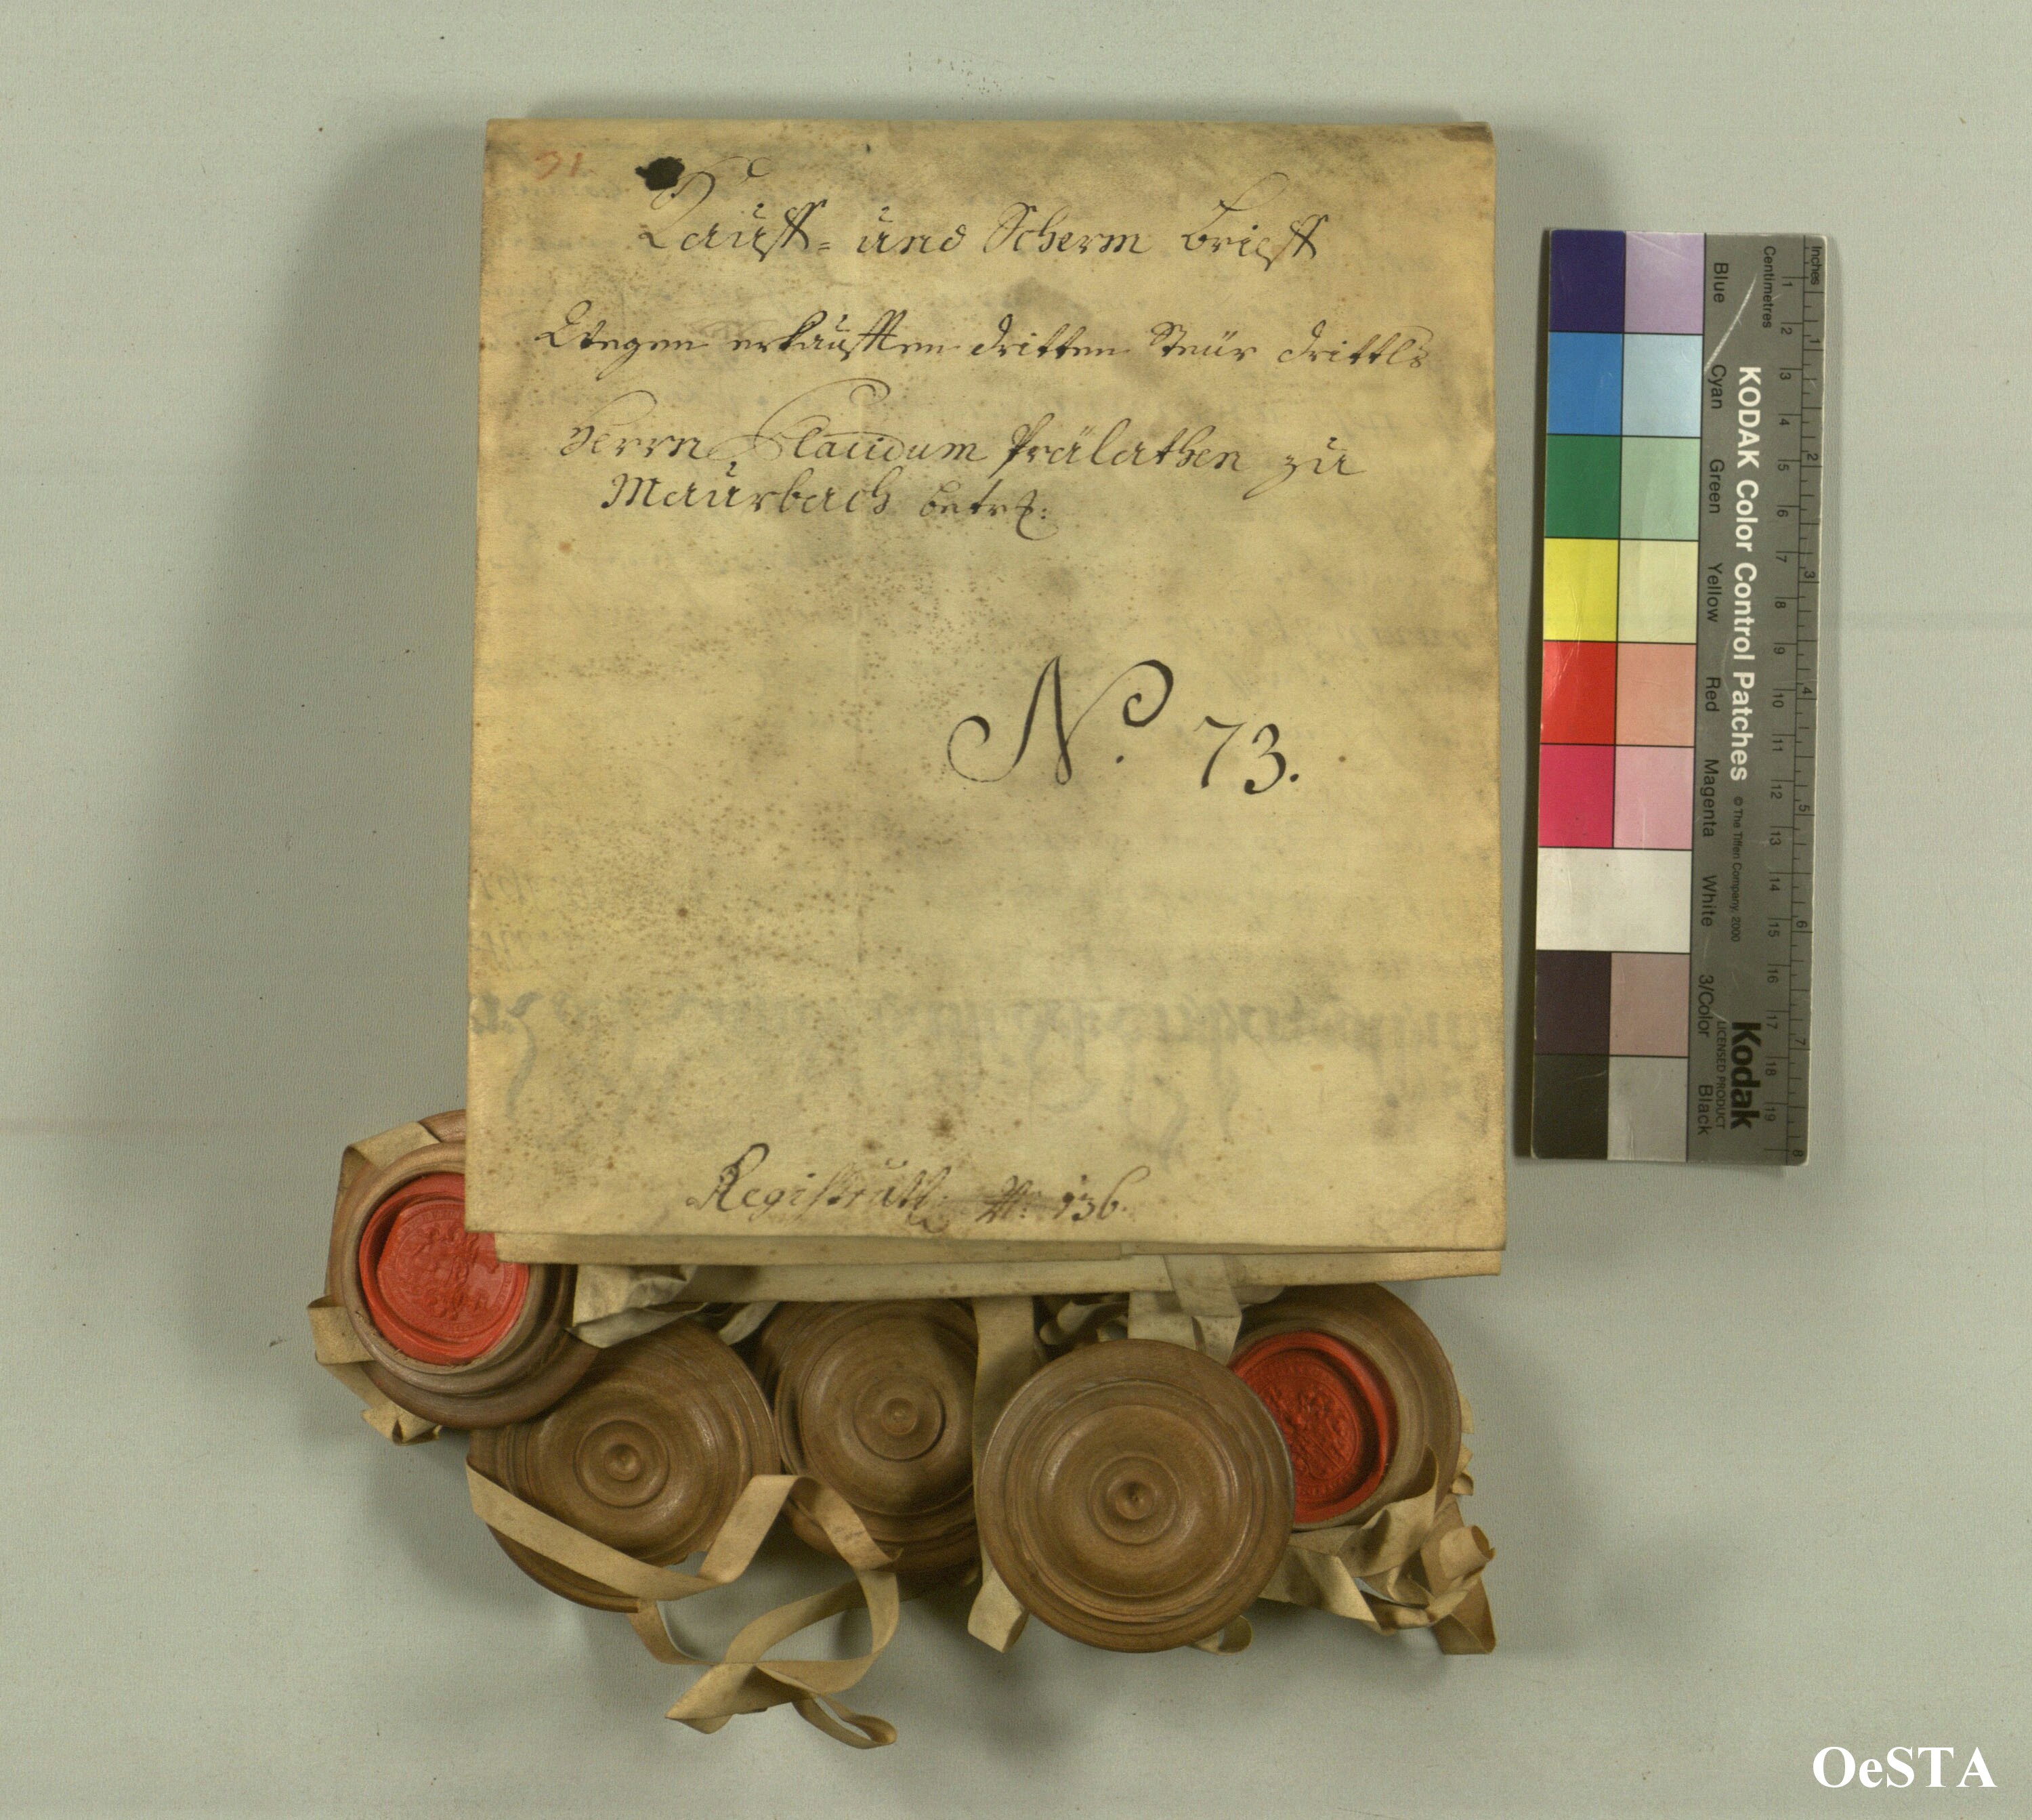 31.
Kauff= und Scherm Brieff
Wegen erkaufften dritten Steür drittls
Herrn Claudum Prälathen zu
Maurbach betrf:
No. 73.
Registrātt: N: 136.
Inches
Centimetres
1 2 3 4 5 6 7 8 9 10 11 12 13 14 15 16 17 18 19
1 2 3 4 5 6 7 8
KODAK Color Control Patches © The Tiffen Company, 2000 Kodak
LICENSED PRODUCT
Blue Cyan Green Yellow Red Magenta White 3/Color Black
OeSTA